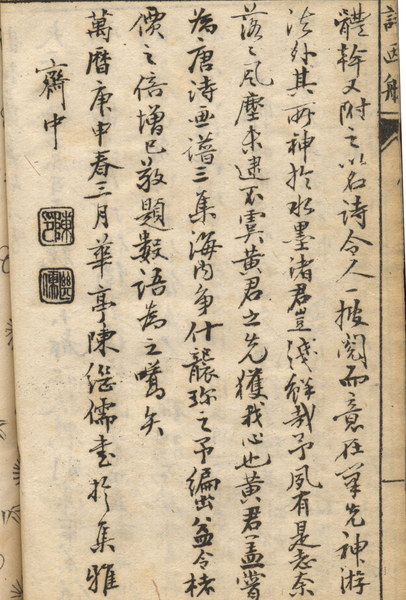 詩画舫
體幹又附之以名詩令人一披閱而意在筆先神游
法外其所神於水墨諸君豈淺鮮哉予夙有是志奈
落〻風塵未逮不虞黄君之先獲我心也黄君盖嘗
為唐詩画譜三集海内争什襲珍之予編出益令楮
價之倍增已敬題數語為之嚆矢
萬曆庚申春三月華亭陳繼儒書於集雅
齋中
繼儒